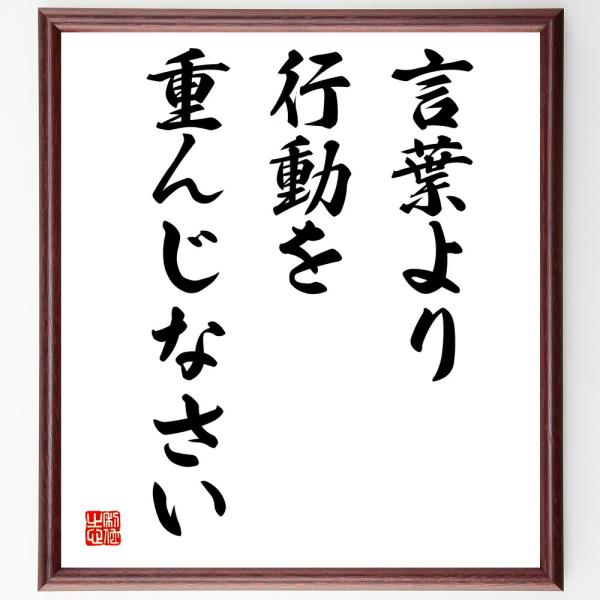 言葉より
行動を
重んじなさい